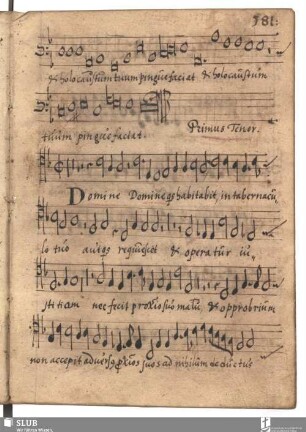 181.
& holocaustum tuum pingue faciat & holocaustum
tuum pingue faciat. Primus Tenor.
Domine Domine qs habitabit, in tabernacu
lo tuo aut qs requiescet & operatur iu,,
stitiam nec fecit proximo suo malu & opprobrium
non accepit adversq suos ad nihilum deductus
SLUB
Wir führen Wissen.